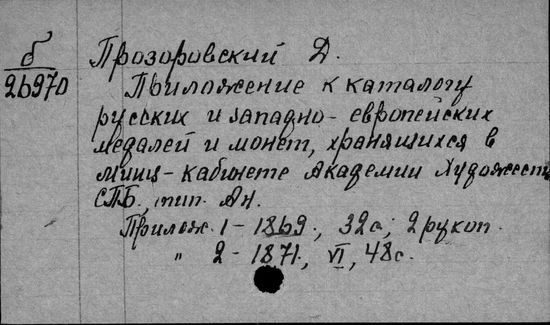 б
26970
Прозоровский Д.
Приложение к каталогу
русских и западно-европейских
медалей и монет, хранящихся в
минц-кабинете Академии Художеств
СПБ., тип. Ан.
Прилож. 1-1869., 32с; 2 рукоп.
" 2-1871., VI, 48с.